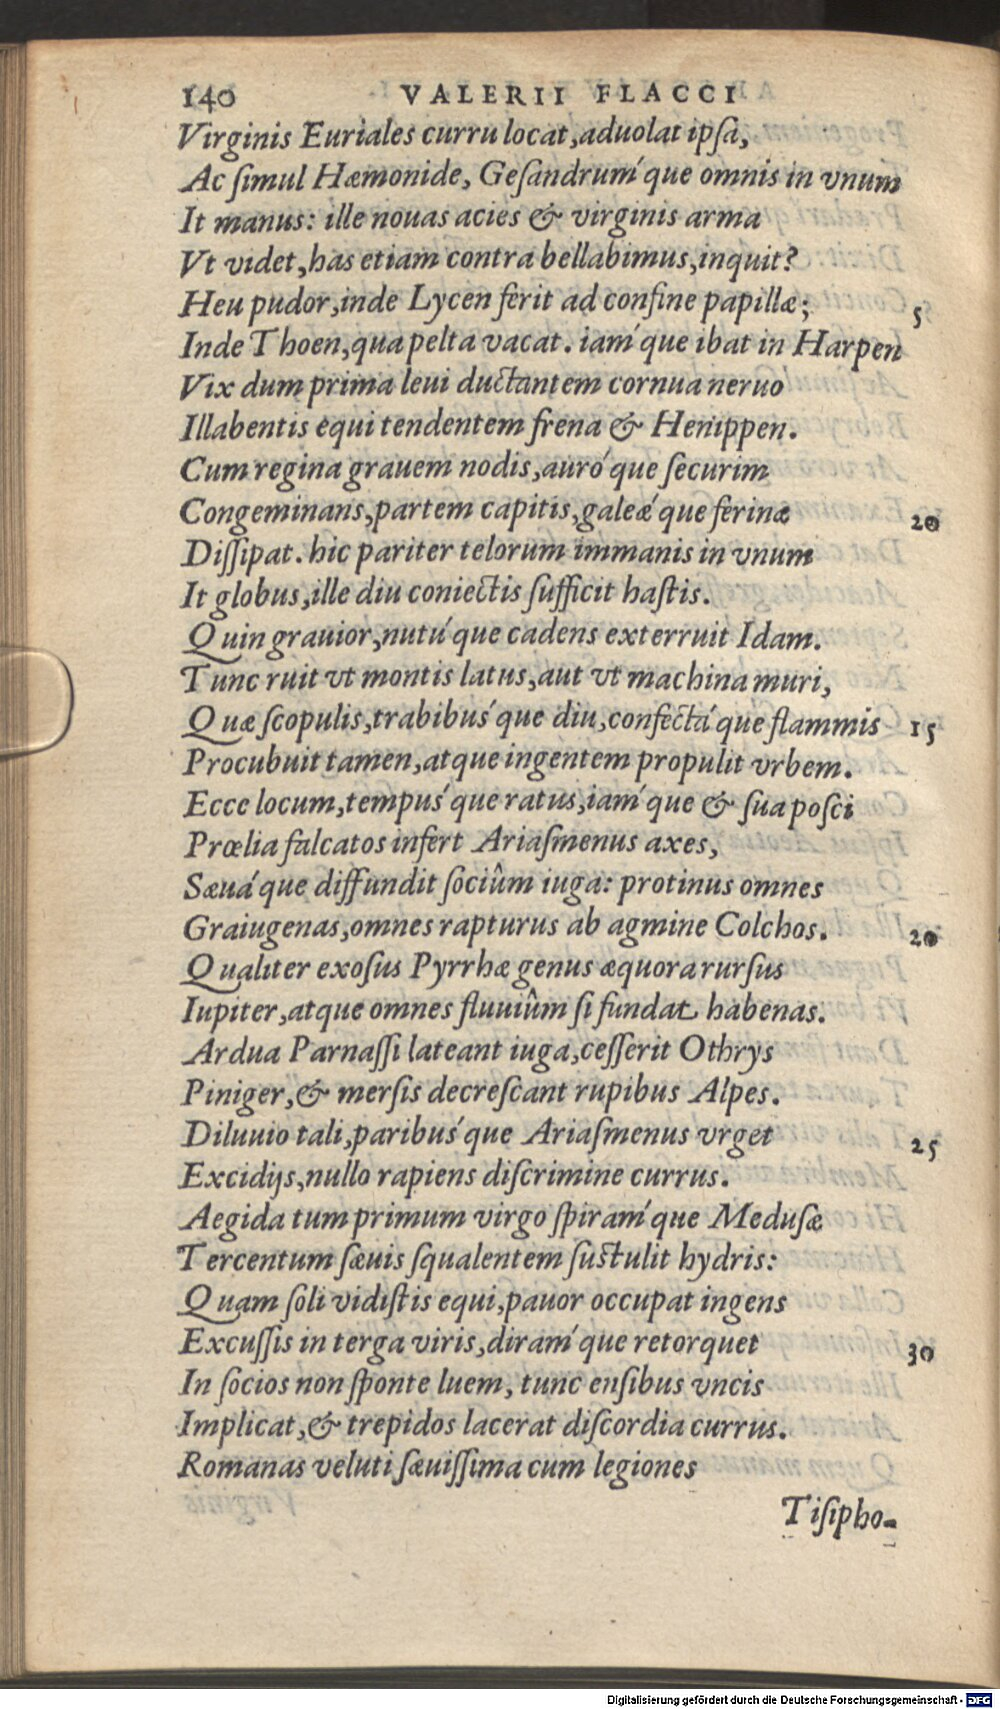 140 VALERII FLACCI
Virginis Euriales curru locat, aduolat ipſa,
Ac ſimul Hæmonide, Geſandrumq́ue omnis in vnum
It manus: ille nouas acies & virginis arma
Vt videt, has etiam contra bellabimus, inquit?
Heu pudor, inde Lycen ferit ad confine papillæ; 5
Inde Thoen, qua pelta vacat. iamq́ue ibat in Harpen
Vix dum prima leui ductantem cornua neruo
Illabentis equi tendentem frena & Henippen.
Cum regina grauem nodis, auroq́ue ſecurim
Congeminans, partem capitis, galeæq́ue ferinæ 20
Diſſipat. hic pariter telorum immanis in vnum
It globus, ille diu coniectis ſufficit haſtis.
Quin grauior, nutuq́ue cadens exterruit Idam.
Tunc ruit vt montis latus, aut vt machina muri,
Quæ ſcopulis, trabibuśque diu, confectaq́ue flammis 15
Procubuit tamen, atque ingentem propulit vrbem.
Ecce locum, tempuśque ratus, iamq́ue & ſua poſci
Prœlia falcatos infert Ariaſmenus axes,
Sæuaq́ue diffundit ſociûm iuga: protinus omnes
Graiugenas, omnes rapturus ab agmine Colchos. 20
Qualiter exoſus Pyrrhæ genus æquora rurſus
Iupiter, atque omnes fluuiûm ſi fundat habenas.
Ardua Parnaſſi lateant iuga, ceſſerit Othrys
Piniger, & merſis decreſcant rupibus Alpes.
Diluuio tali, paribuśque Ariaſmenus vrget 25
Excidijs, nullo rapiens diſcrimine currus.
Aegida tum primum virgo ſpiramq́ue Meduſæ
Tercentum ſæuis ſqualentem ſuſtulit hydris:
Quam ſoli vidiſtis equi, pauor occupat ingens
Excuſſis in terga viris, diramq́ue retorquet 30
In ſocios non ſponte luem, tunc enſibus vncis
Implicat, & trepidos lacerat diſcordia currus.
Romanas veluti ſæuiſſima cum legiones
Tiſipho-
Digitalisierung gefördert durch die Deutsche Forschungsgemeinschaft - DFG